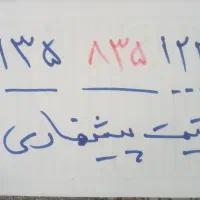 ۱۳۵ ۸۳۵ ۱۲۲
قیمت پیشنهادی